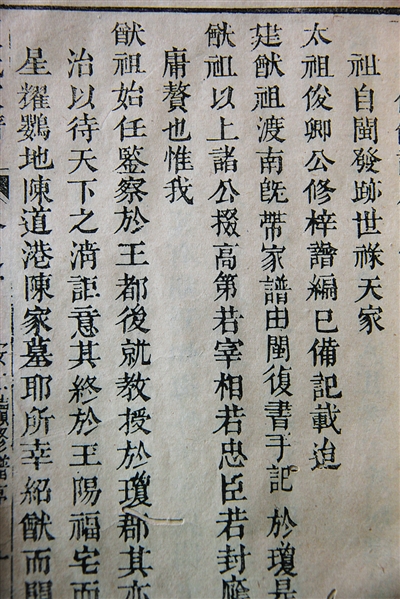 祖自閩發跡世祿天家
太祖俊卿公修梓譜編已備記載迨
廷猷祖渡南旣帶家譜由閩復書手記於瓊是
猷祖以上諸公掇高第若宰相若忠臣若封
庸贅也惟我
猷祖始任鑒察於王都後就教授於瓊郡其亦
治以待天下之淸詎意其終於王陽福宅而
星耀鸚地陳道港陳家墓耶所幸紹猷而開